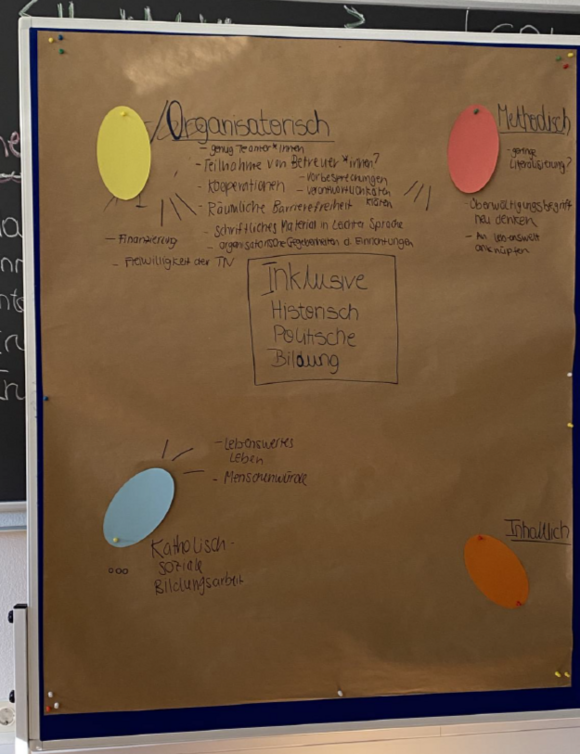 Organisatorisch
- genug Teamer*innen
- Teilnahme von Betreuer*innen?
- Kooperationen
- Vorbesprechungen
- Verantwortlichkeiten klären
- Räumliche Barrierefreiheit
- Schriftliches Material in Leichter Sprache
- organisatorische Gegebenheiten d. Einrichtungen
- Finanzierung
- Freiwilligkeit der TN
Methodisch
- geringe
Literalisierung?
Überwältigungsbegriff
neu denken
- An Lebenswelt
anknüpfen
Inklusive
Historisch
Politische
Bildung
- Lebenswertes
Leben
- Menschenwürde
Katholisch-
soziale
Bildungsarbeit
Inhaltlich